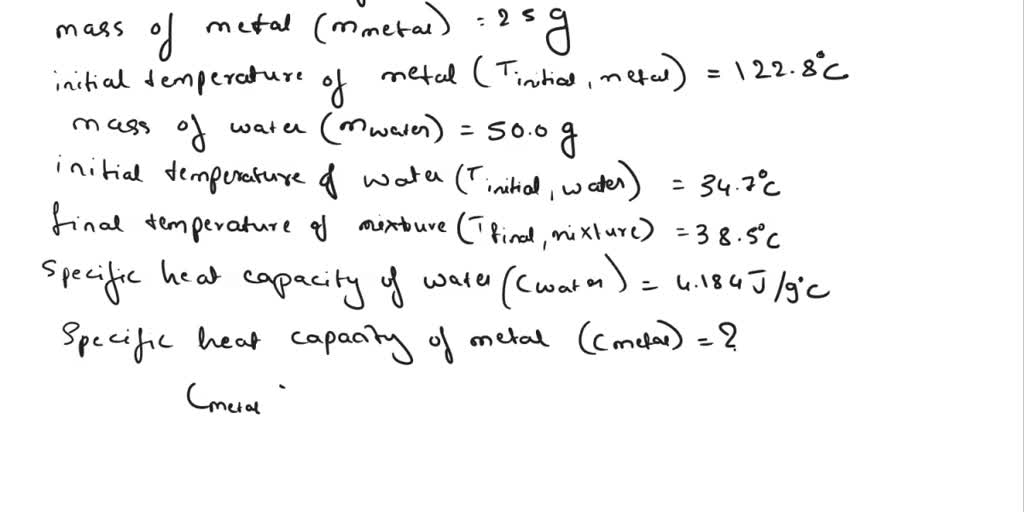 mass of metal (mmetal) = 25 g
initial temperature of metal (Tinitial, metal) = 122.8°C
mass of water (mwater) = 50.0 g
initial temperature of water (Tinitial, water) = 34.7°C
final temperature of mixture (Tfinal, mixture) = 38.5°C
Specific heat capacity of water (Cwater) = 4.184 J/g°C
Specific heat capacity of metal (Cmetal) = ?
Cmetal